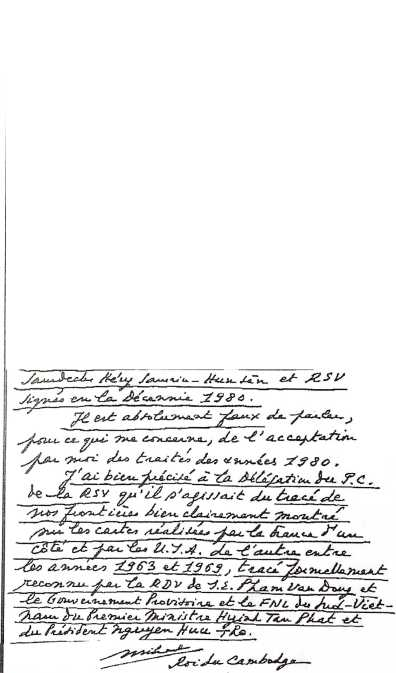 Samdechs Héng Samrin - Hun Sèn et RSV
signés en la Décennie 1980.
Il est absolument faux de parler,
pour ce qui me concerne, de l'acceptation
par moi des traités des années 1980.
J'ai bien précisé à la Délégation du P.C.
de la RSV qu'il s'agissait du tracé de
nos frontières bien clairement montré
sur les cartes réalisées par la France d'un
côté et par les U.S.A. de l'autre entre
les années 1963 et 1969, tracé formellement
reconnu par la RDV de S.E. Pham Van Dong et
le Gouvernement Provisoire et le FNL du Sud-Viêt-
nam du Premier Ministre Huinh Tan Phat et
du Président Nguyen Huu Tho.
Roi du Cambodge